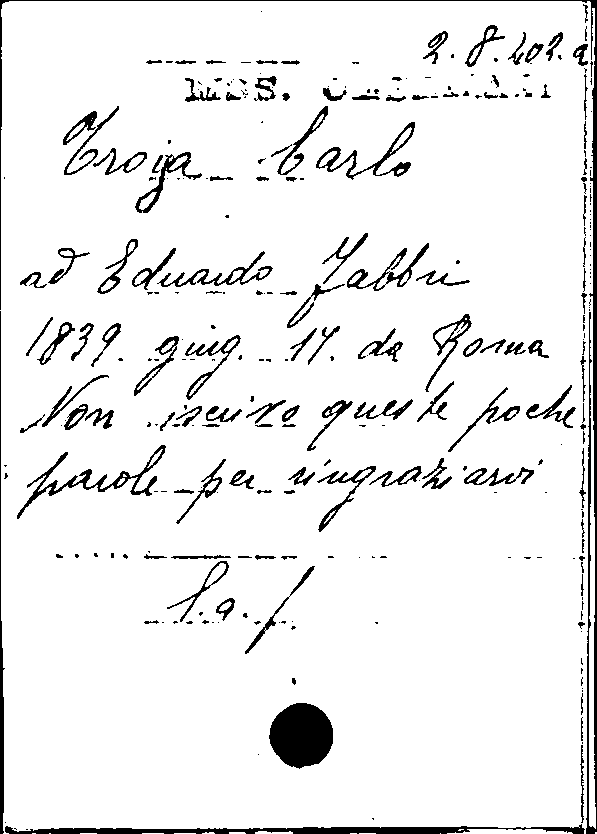 2.8.202.a
MSS.
Troja Carlo
ad Eduardo Fabbri
1839. giug. 17. da Roma
Non iscrivo queste poche
parole per ringraziarvi
l.a.f.